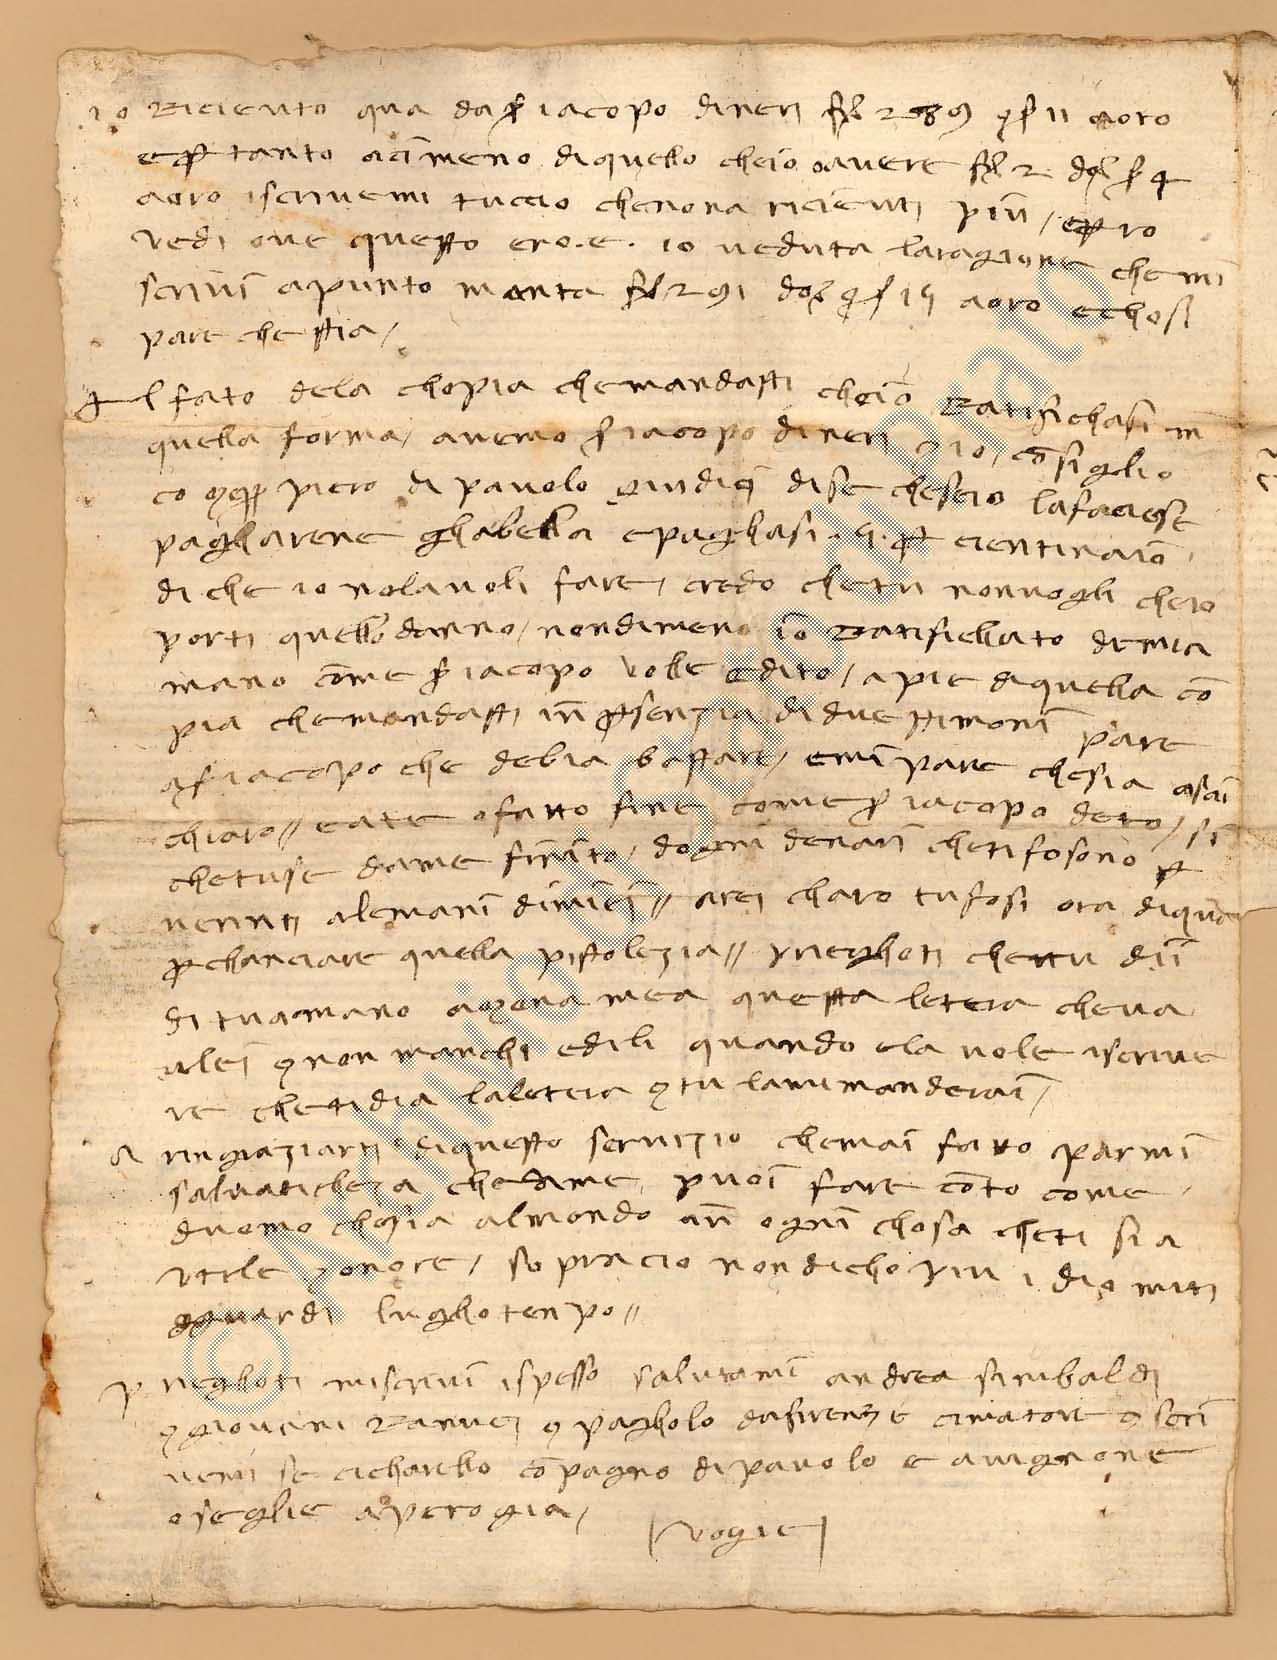 io ricieuto qua da s iacopo dineri fl 289 s 11 aoro
e p tanto acimeno diquello cheio avere fl 2 s 4
aoro iscrivemi tuccio chenona ricieuti piu / e pero
vedi ove questo ero.e. io veduta laragione chemi
scrivi apunto monta fl 291 s 15 aoro echosi
pare che stia /
l fato dela chopia chemandasti cheio ratifichasi in
quella forma / avemo s iacopo dineri io / cosiglio
co piero di pauolo giudici dise cheseio lafaciese
pagharene ghabella epaghasi .5. p cientinaio
di che io nolavoli fare / credo chetu nonvogli cheio
porti quello danno / nondimeno io ratifichato demia
mano come s iacopo volle edito / apie diquella co
pia chemandasti in psenzia di due stimoni pare
a s iacopo che debia bastare / emi pare chesia asai
chiaro // eate ofatto fine come s iacopo deto / si
chetuse dame finito / dogni denari chetifosono p
venuti alemani dimiei // arei charo tufosi ora diqua
p chanciare quella pistolezia // prieghoti chettu dii
di tuamano amona mea questa letera cheva
alei nonmanchi edili quando ela vole iscrive
re chetidia laletera tu lamimanderai /
a ringraziarti diquesto servizio chemai fatto parmi
salvaticheza chedame puoi fare coto come
duomo chesia almondo in ogni chosa cheti sia
utile onore / sopracio nondicho piu idio miti
ghuardi lugho tenpo //
prieghoti miscrivi ispesso salutami andrea sinibaldi
giovani ranuci pagholo dafirenze cimatore scri
vemi se cicharello copagno dipauolo e avignone
oseglie aperogia /
volgie
© Archivio di Stato di Prato